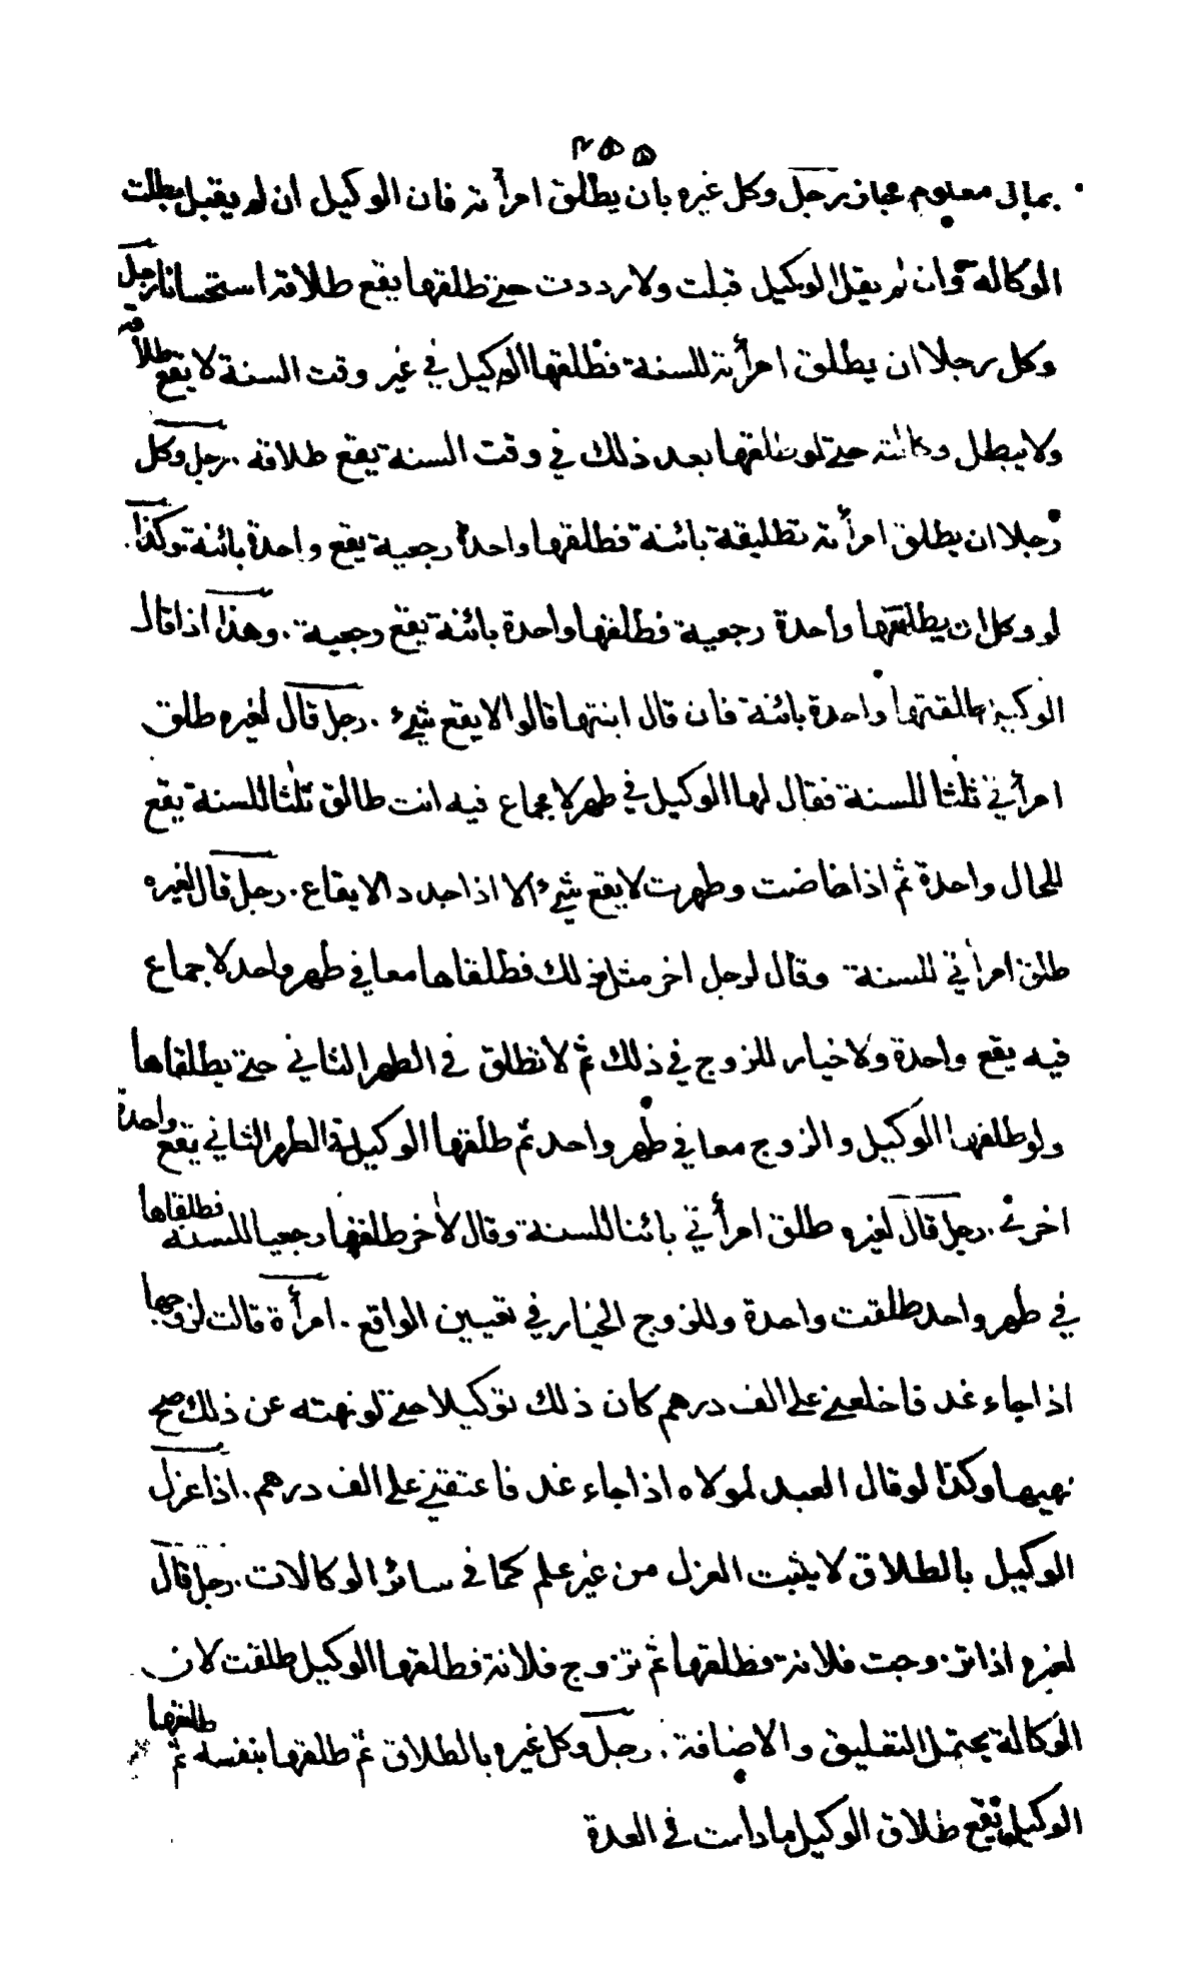 ٢٥٥
بمال معلوم مجاز رجل وكل غيره بان يطلق امرأته فان الوكيل ان لم يقبل بطلت
الوكالة وان لم يقل الوكيل قبلت ولا رددت حتى طلقها يقع طلاقه استحسانا رجل
وكل رجلا ان يطلق امرأته للسنة فطلقها الوكيل في غير وقت السنة لا يقع طلاقه
ولا يبطل وكالته حتى لو طلقها بعد ذلك في وقت السنة يقع طلاقه . رجل وكل
رجلا ان يطلق امرأته تطليقة بائنة فطلقها واحدة رجعية يقع واحدة بائنة وكذا
لو وكل ان يطلقها واحدة رجعية فطلقها واحدة بائنة يقع رجعية . وهذا اذا قال
الوكيل طلقتها واحدة بائنة فان قال ابنتها قالوا لا يقع شيء . رجل قال لغيره طلق
امرأتي ثلثا للسنة فقال لها الوكيل في طهر لا جماع فيه انت طالق ثلثا للسنة يقع
للحال واحدة ثم اذا حاضت وطهرت لا يقع شيء الا اذا جدد الايقاع . رجل قال لغيره
طلق امرأتي للسنة وقال لرجل اخر مثل ذلك فطلقاها معا في طهر واحد لا جماع
فيه يقع واحدة ولا خيار للزوج في ذلك ثم لا تطلق في الطهر الثاني حتى يطلقاها
ولو طلقها الوكيل والزوج معا في طهر واحد ثم طلقها الوكيل في الطهر الثاني يقع واحدة
اخرى . رجل قال لغيره طلق امرأتي بائنا للسنة وقال لاخر طلقها رجعيا للسنة فطلقاها
في طهر واحد طلقت واحدة وللزوج الخيار في تعيين الواقع . امرأة قالت لزوجها
اذا جاء غد فاخلعني على الف درهم كان ذلك توكيلا حتى لو نهته عن ذلك صح
نهيها وكذا لو قال العبد لمولاه اذا جاء غد فاعتقني على الف درهم . اذا عزل
الوكيل بالطلاق لا يثبت العزل من غير علم كما في سائر الوكالات . رجل قال
لغيره اذا تزوجت فلانة فطلقها ثم تزوج فلانة فطلقها الوكيل طلقت لان
الوكالة يحتمل التعليق والاضافة . رجل وكل غيره بالطلاق ثم طلقها بنفسه ثم طلقها
الوكيل يقع طلاق الوكيل ما دامت في العدة